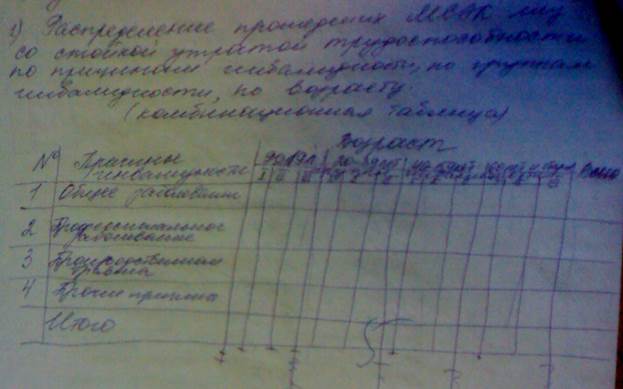 1) Распределение прошедших МСЭК лиц
со стойкой утратой трудоспособности
по причинам инвалидности, по группам
инвалидности, по возрасту.
(комбинационная таблица)
Возраст
№ Причины инвалидности Всего
1 Общие заболевания
2 Профессиональное заболевание
3 Производственная травма
4 Прочие причины
Итого